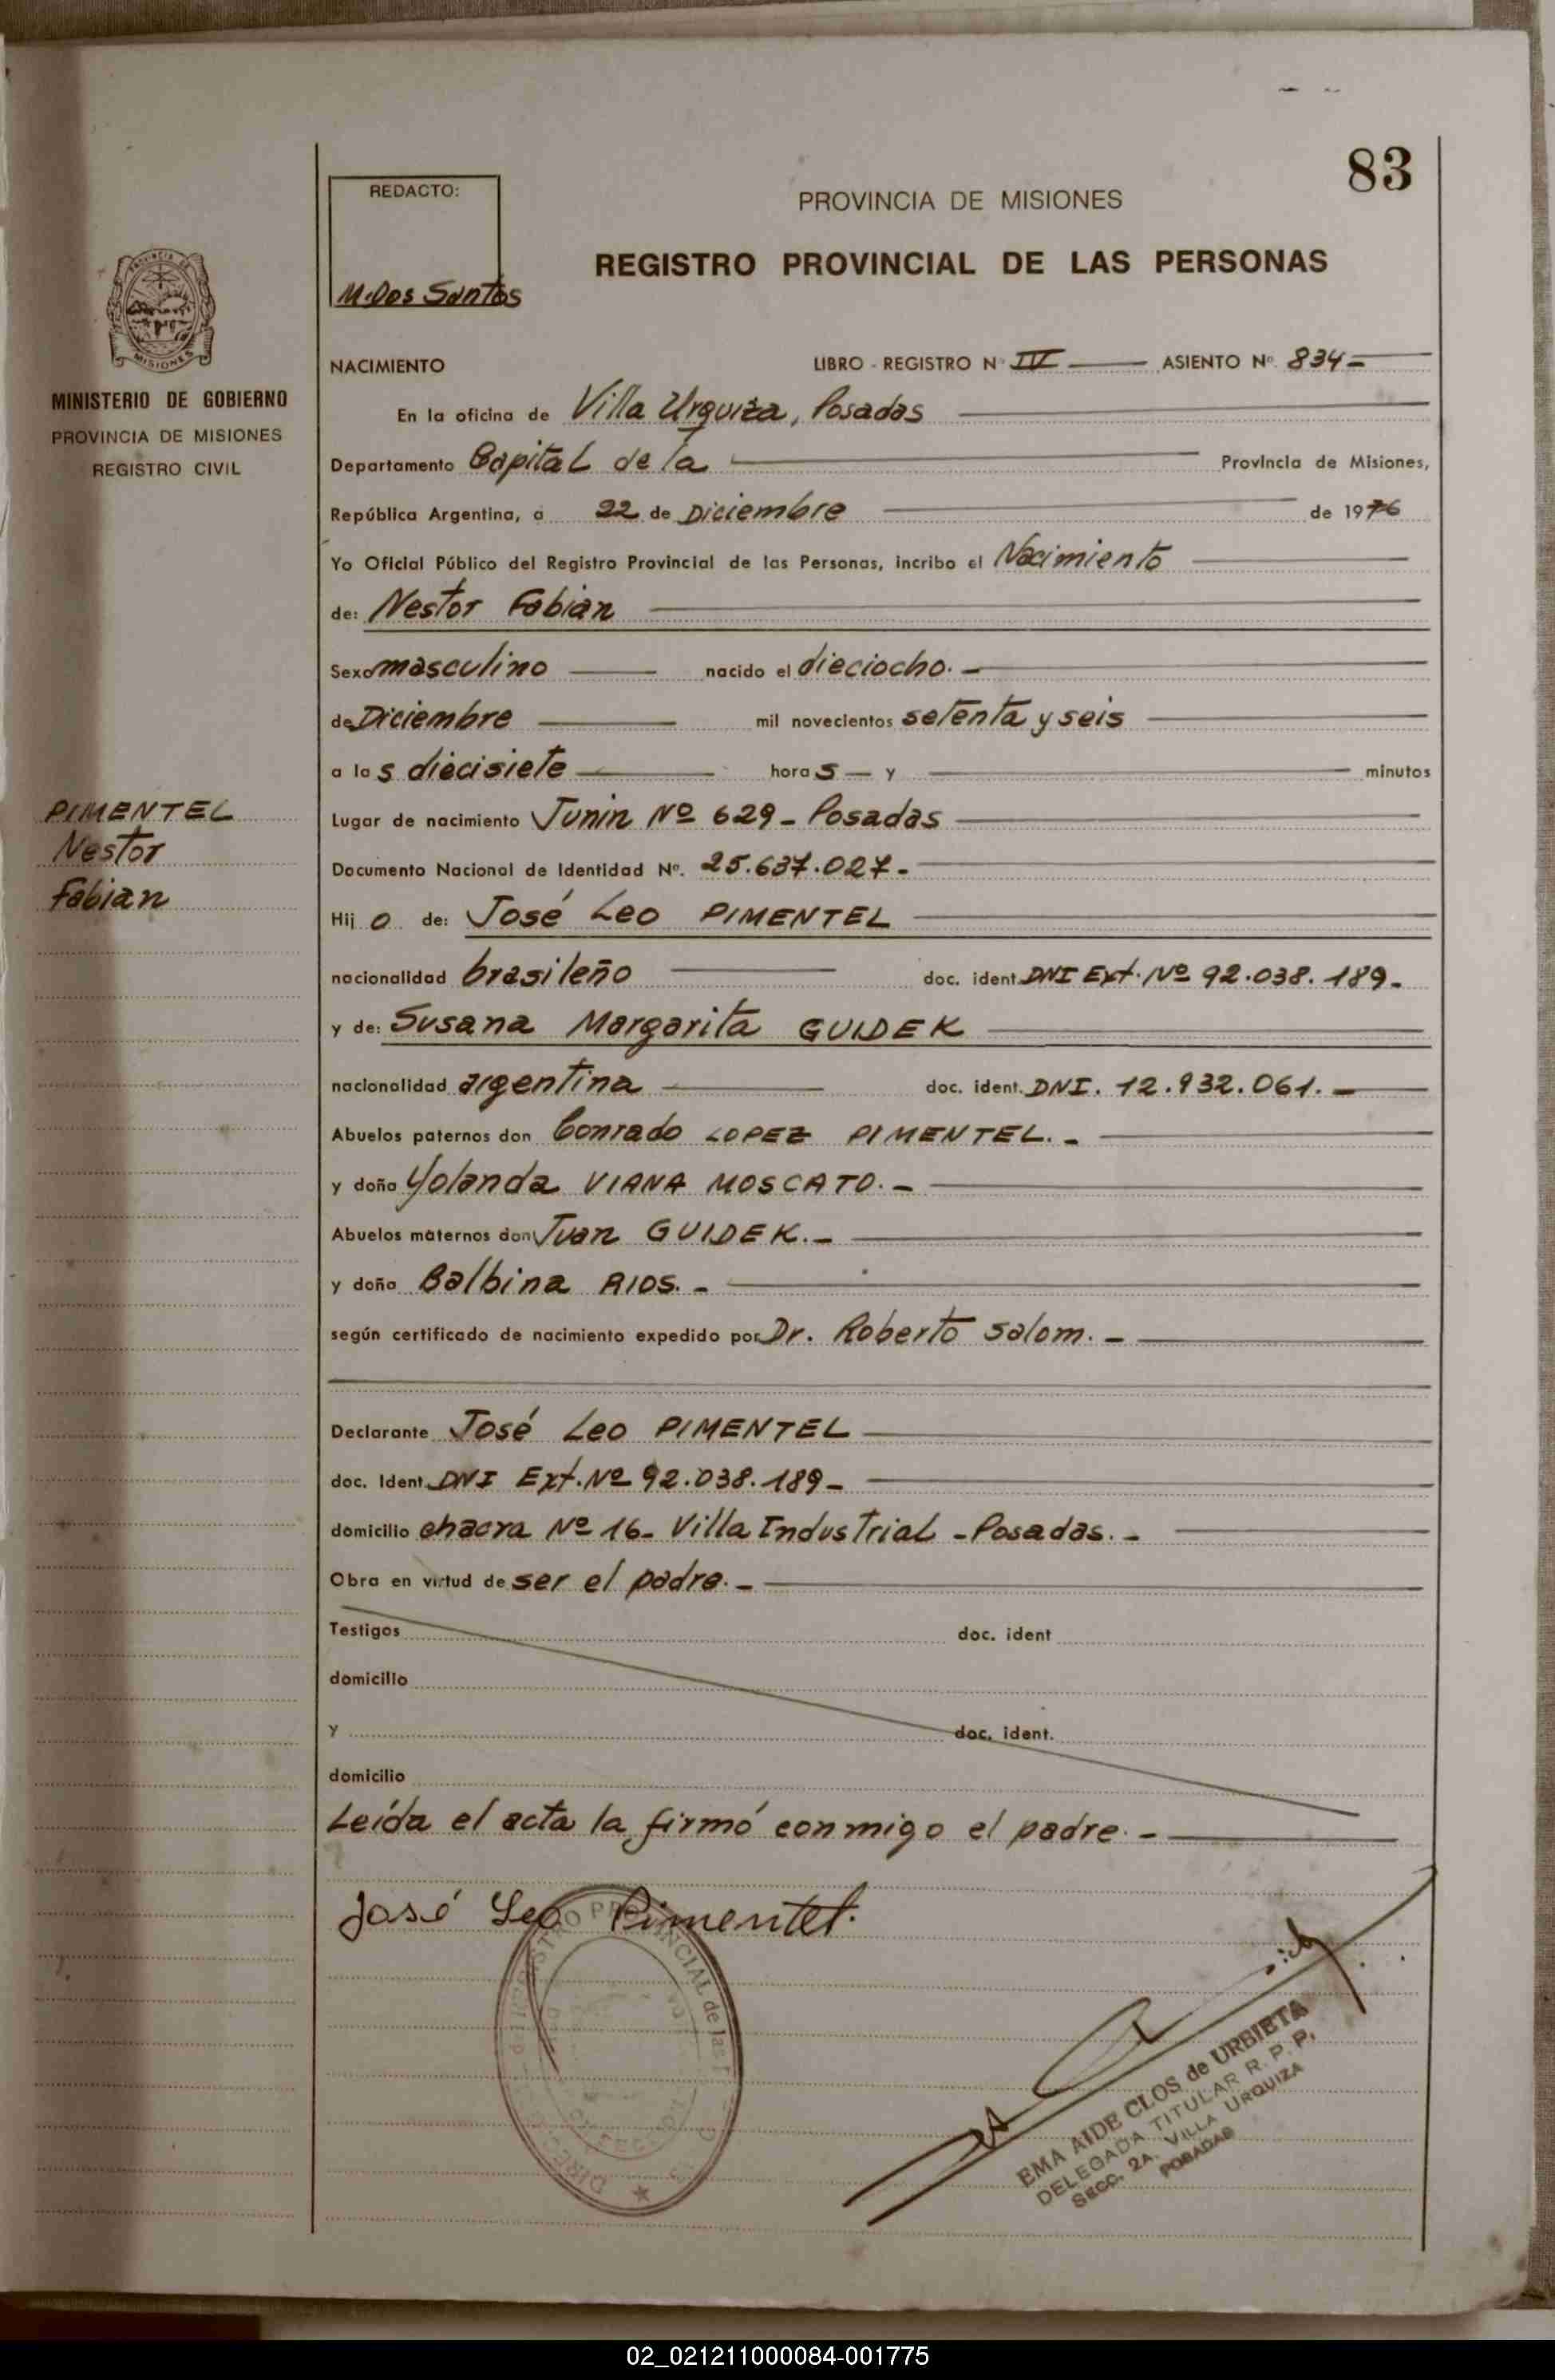 83
REDACTO:
M. Dos Santos
PROVINCIA DE MISIONES
REGISTRO PROVINCIAL DE LAS PERSONAS
PROVINCIA DE
MISIONES
MINISTERIO DE GOBIERNO
PROVINCIA DE MISIONES
REGISTRO CIVIL
PIMENTEL
Nestor
Fabian
NACIMIENTO LIBRO - REGISTRO Nº IV ASIENTO Nº 834-
En la oficina de Villa Urquiza, Posadas
Departamento Capital de la Provincia de Misiones,
República Argentina, a 22 de Diciembre de 1976
Yo Oficial Público del Registro Provincial de las Personas, incribo el Nacimiento
de: Nestor Fabian
Sexo masculino nacido el dieciocho. -
de Diciembre mil novecientos setenta y seis
a las diecisiete horas - y minutos
Lugar de nacimiento Junin Nº 629 - Posadas
Documento Nacional de Identidad Nº. 25.637.027.-
Hijo de: José Leo PIMENTEL
nacionalidad brasileño doc. ident. DNI Ext. Nº 92.038.189-
y de: Susana Margarita GUIDEK
nacionalidad argentina doc. ident. DNI. 12.932.061. -
Abuelos paternos don Conrado LOPEZ PIMENTEL. -
y doña Yolanda VIANA MOSCATO. -
Abuelos maternos don Juan GUIDEK. -
y doña Balbina RIOS. -
según certificado de nacimiento expedido por Dr. Roberto Salom. -
Declarante José Leo PIMENTEL
doc. Ident. DNI Ext. Nº 92.038.189-
domicilio chacra Nº 16- Villa Industrial - Posadas. -
Obra en virtud de ser el padre. -
Testigos doc. ident
domicilio
y doc. ident.
domicilio
Leída el acta la firmó conmigo el padre. -
José Leo Pimentel.
EMA AIDE CLOS de URBIETA
DELEGADA TITULAR R. P. P.
SECC. 2A. VILLA URQUIZA
POSADAS
02_021211000084-001775